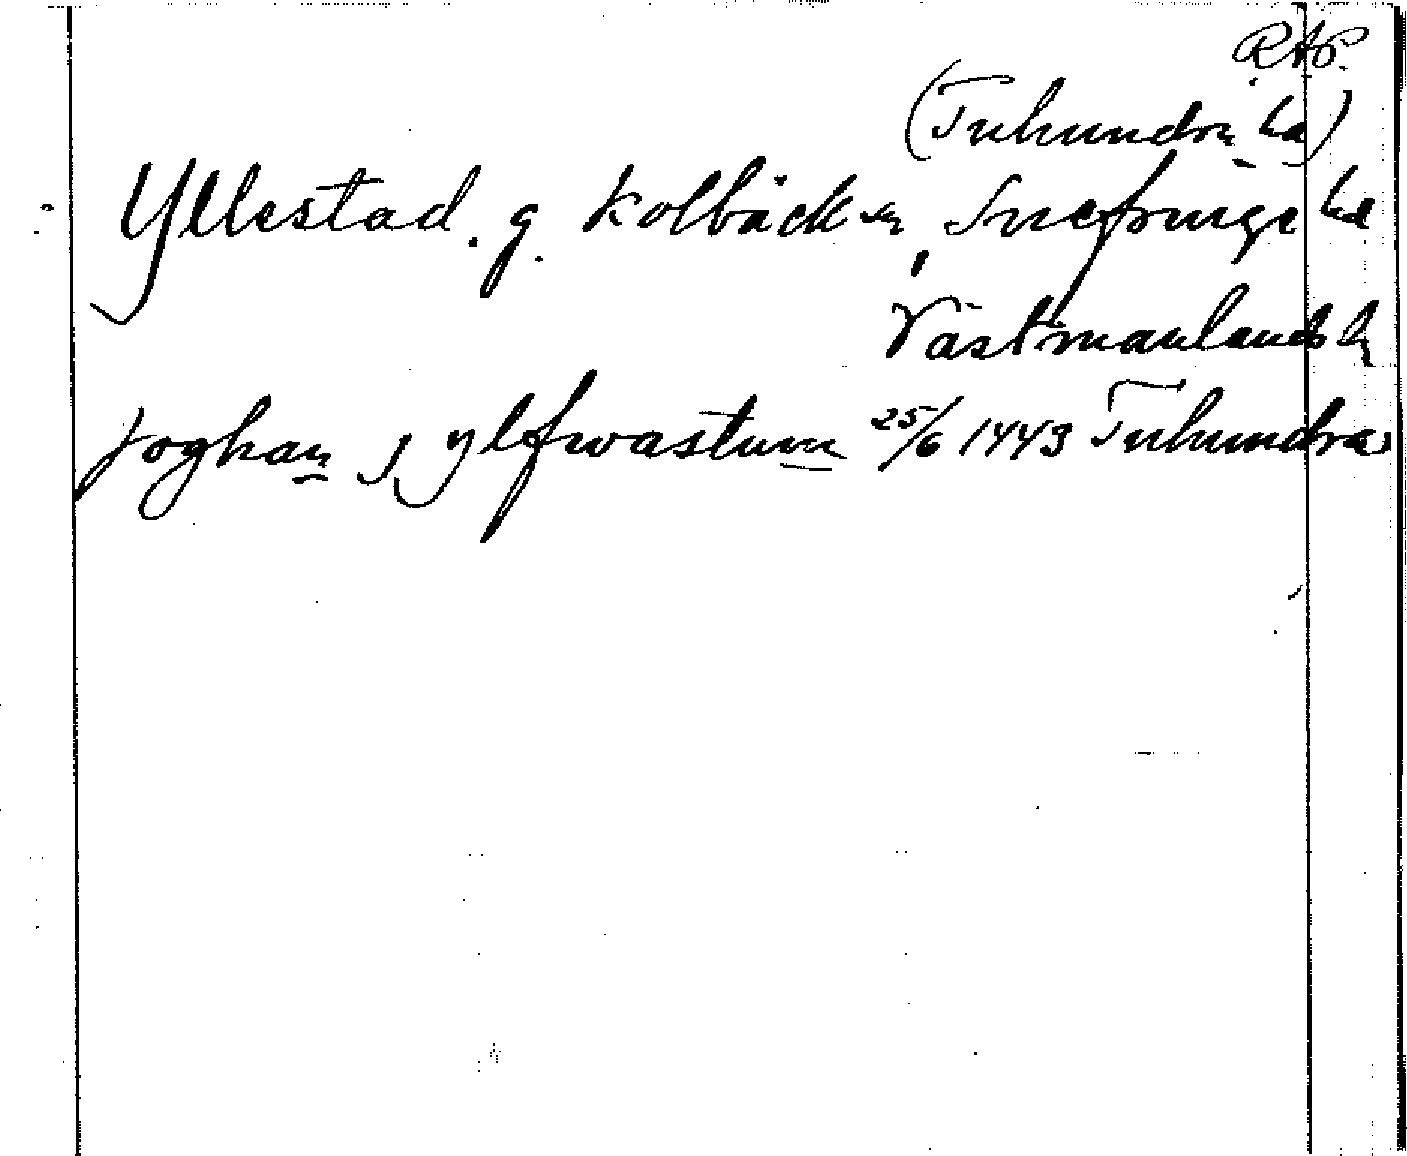 RAP.
(Tuhundra hd)
Yllestad. g. Kolbäck sn, Snefringe hd
Västmanlands l
joghan j ylfwastum 25/6 1443 Tuhundra